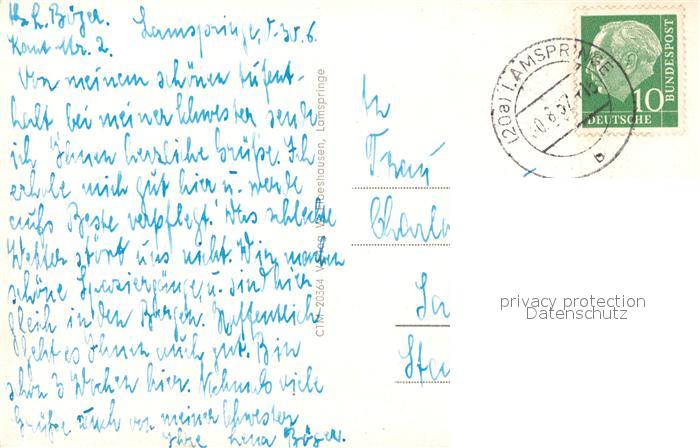 Abs. L. Böger.
Kant-Str. 2.
Lamspringe, d. 30.6.
Von meinem schönen Aufent-
halt bei meiner Schwester sende
ich Ihnen herzliche Grüße. Ich
erhole mich gut hier u. werde
aufs Beste verpflegt. Das schlechte
Wetter stört uns nicht. Wir machen
schöne Spaziergänge, u. sind hier
gleich in den Bergen. Hoffentlich
geht es Ihnen auch gut. Bin
schon 3 Wochen hier. Nochmals viele
Grüße auch von meiner Schwester
Ihre Lena Böger.
CTM 20364 Lamspringe
An
Frau
Charlo
(20a) LAMSPRINGE
b
10
DEUTSCHE
BUNDESPOST
privacy protection
Datenschutz